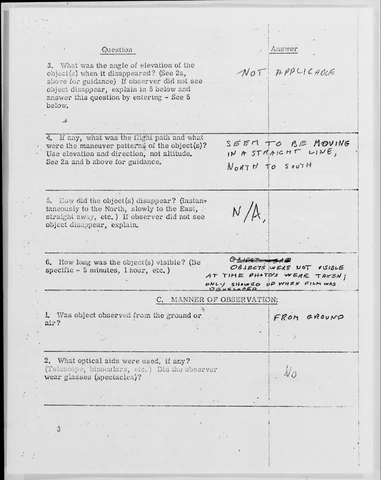 Question Answer
3. What was the angle of elevation of the
object(s) when it disappeared? (See 2a,
above for guidance) If observer did not see
object disappear, explain in 5 below and
answer this question by entering - See 5
below.
NOT APPLICABLE
4. If any, what was the flight path and what
were the maneuver patterns of the object(s)?
Use elevation and direction, not altitude.
See 2a and b above for guidance.
SEEM TO BE MOVING
IN A STRAIGHT LINE,
NORTH TO SOUTH
5. How did the object(s) disappear? (Instan-
taneously to the North, slowly to the East,
straight away, etc.) If observer did not see
object disappear, explain.
N/A,
6. How long was the object(s) visible? (Be
specific - 5 minutes, 1 hour, etc.)
OBJECTS WERE NOT VISIBLE
AT TIME PHOTO'S WERE TAKEN;
ONLY SHOWED UP WHEN FILM WAS
DEVELOPED
C. MANNER OF OBSERVATION:
1. Was object observed from the ground or
air?
FROM GROUND
2. What optical aids were used, if any?
(Telescope, binoculars, etc.) Did the observer
wear glasses (spectacles)?
No
3